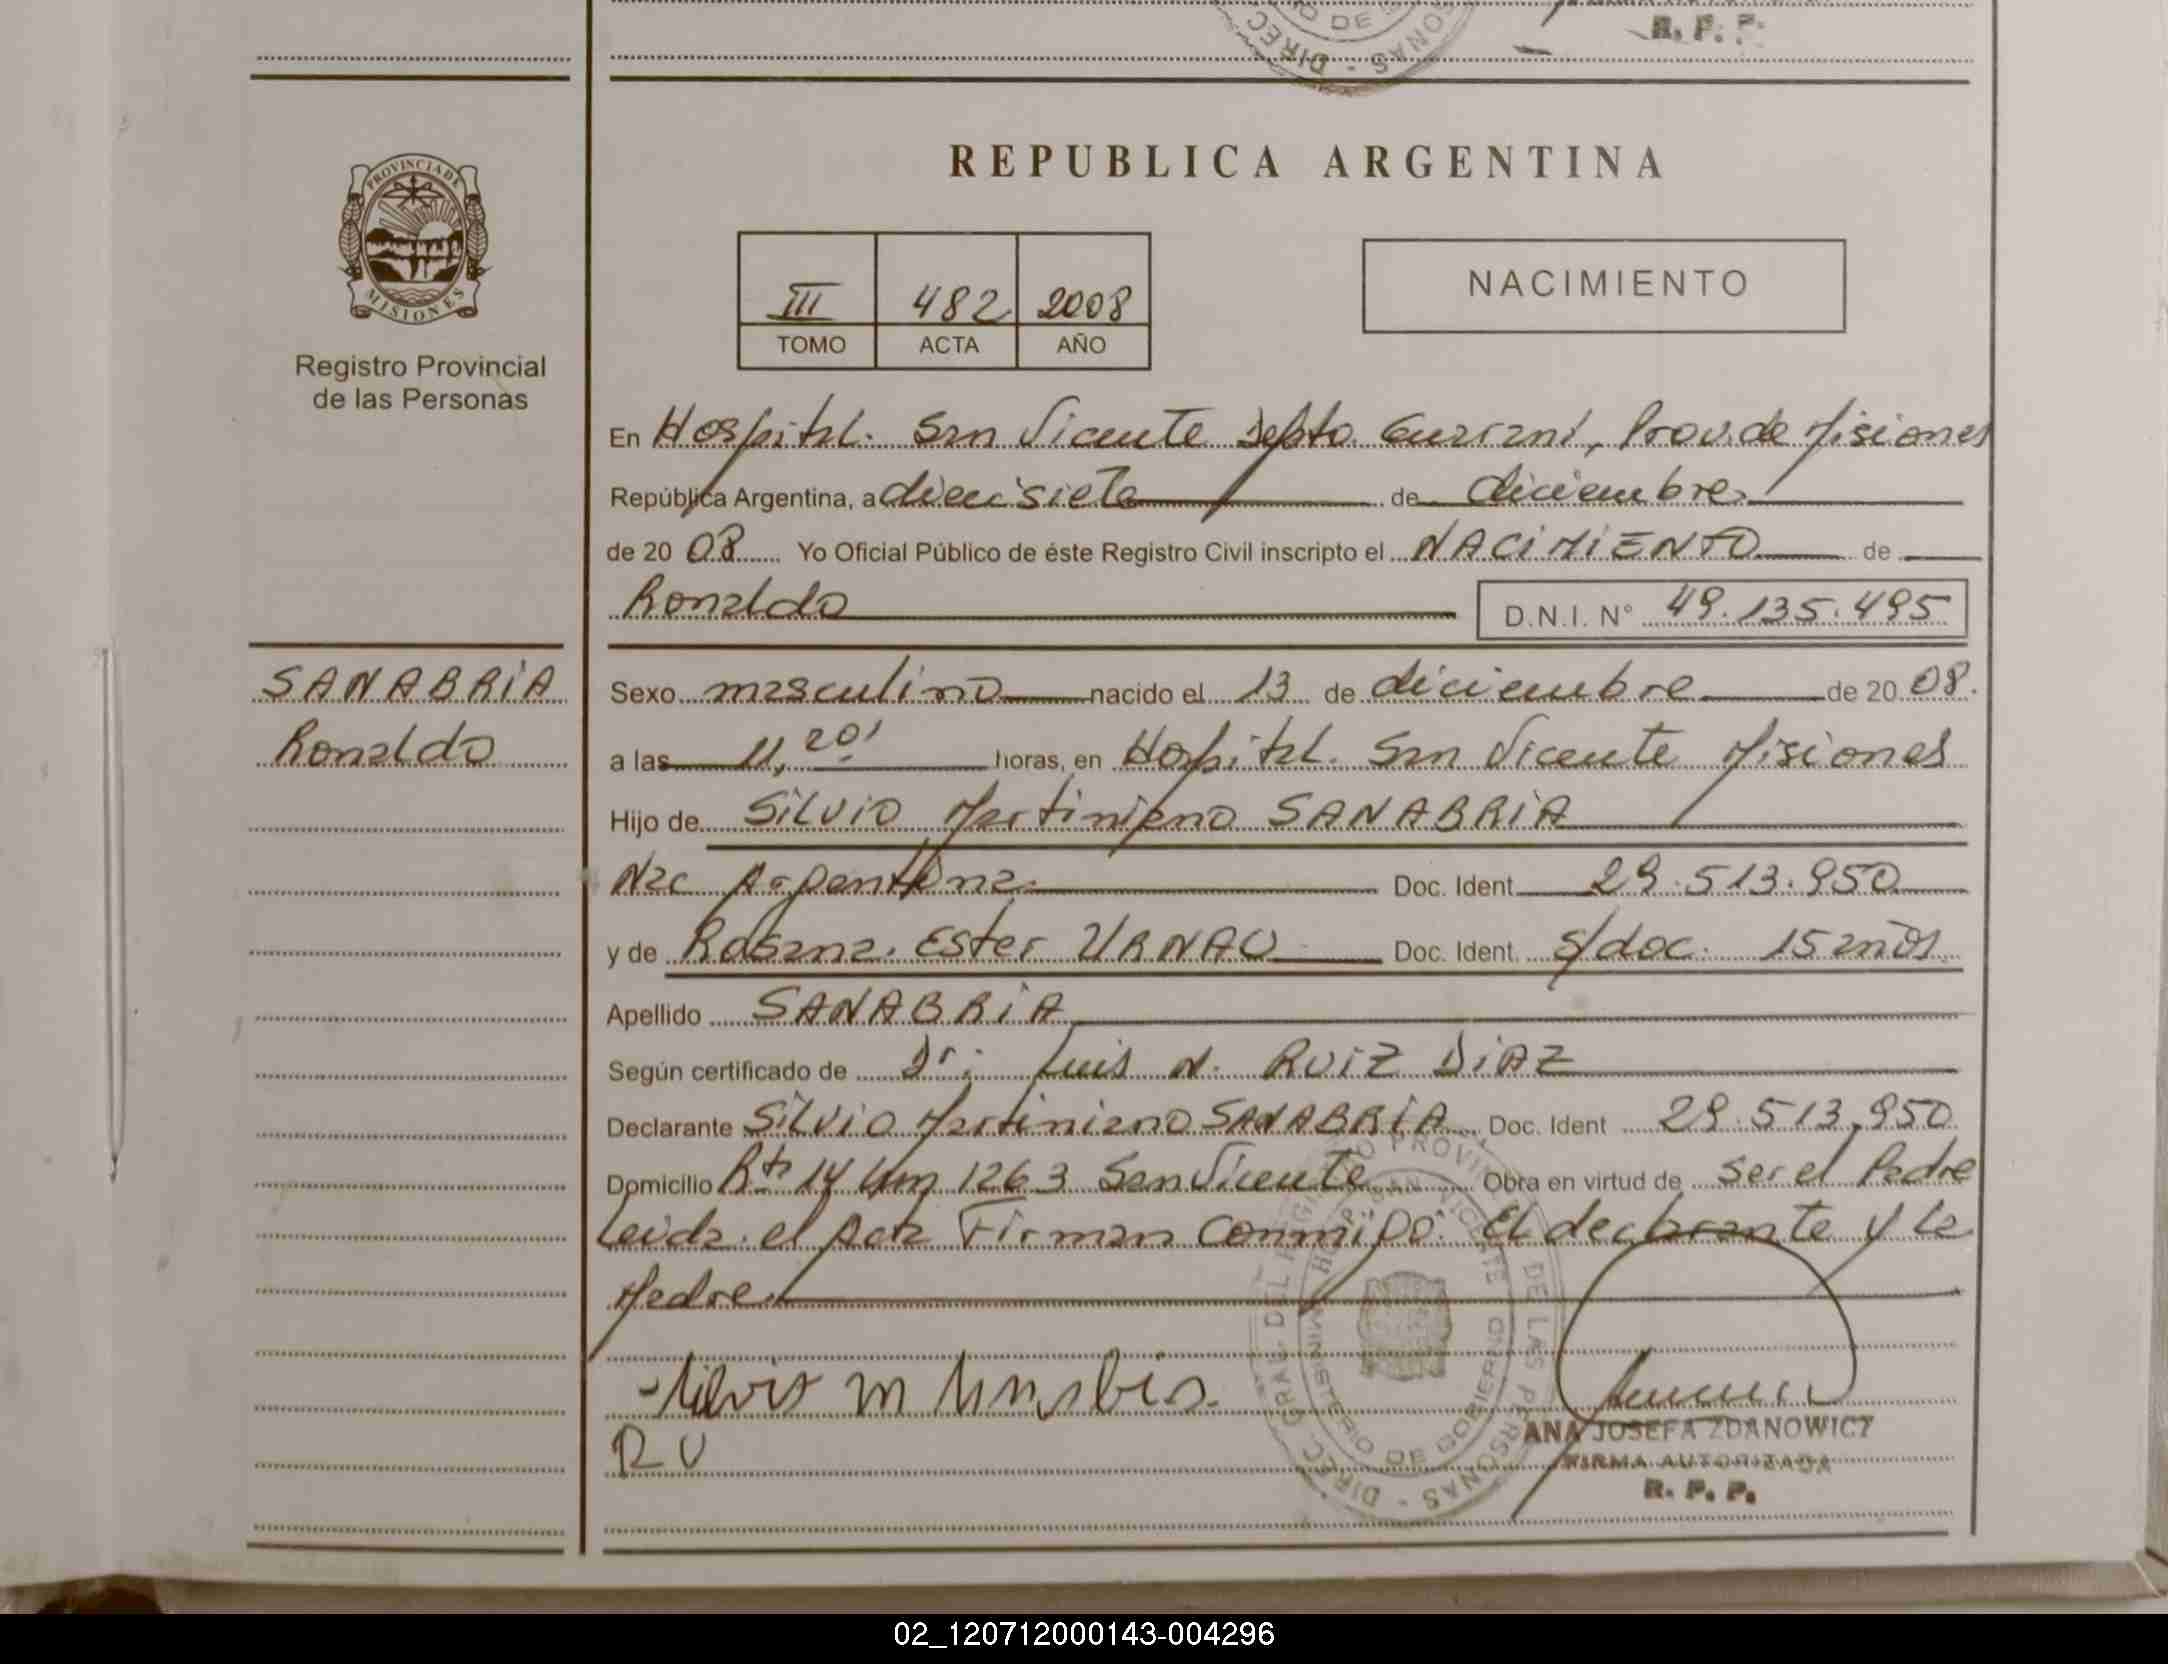 R. P. P.
DIREC
PROVINCIA DE
MISIONES
Registro Provincial
de las Personas
REPUBLICA ARGENTINA
III 482 2008
TOMO ACTA AÑO
NACIMIENTO
En Hospital. San Vicente Depto. Guarani, Prov. de Misiones
República Argentina, a diecisiete de diciembre
de 20 08 Yo Oficial Público de éste Registro Civil inscripto el NACIMIENTO de
Ronaldo D.N.I. N° 49.135.495
SANABRIA
Ronaldo
Sexo masculino nacido el 13 de diciembre de 20 08.
a las 11,20' horas, en Hospital. San Vicente Misiones
Hijo de Silvio Martiniano SANABRIA
Nac Argentina. Doc. Ident 29.513.950
y de Rosana. Ester URNAU Doc. Ident. s/doc. 15 años.
Apellido SANABRIA
Según certificado de Dr: Luis N. RUIZ DIAZ
Declarante Silvio Martiniano SANABRIA Doc. Ident 29.513.950
Domicilio Rta 14 Km 1263 San Vicente Obra en virtud de ser el Padre
Leida el Acta Firman Conmigo: El declarante y la
Madre.
R U
DIREC. GRAL. DEL REGISTRO PROVINCIAL DE LAS PERSONAS
MINISTERIO DE GOBIERNO
ANA JOSEFA ZDANOWICZ
FIRMA AUTORIZADA
R. P. P.
02_120712000143-004296